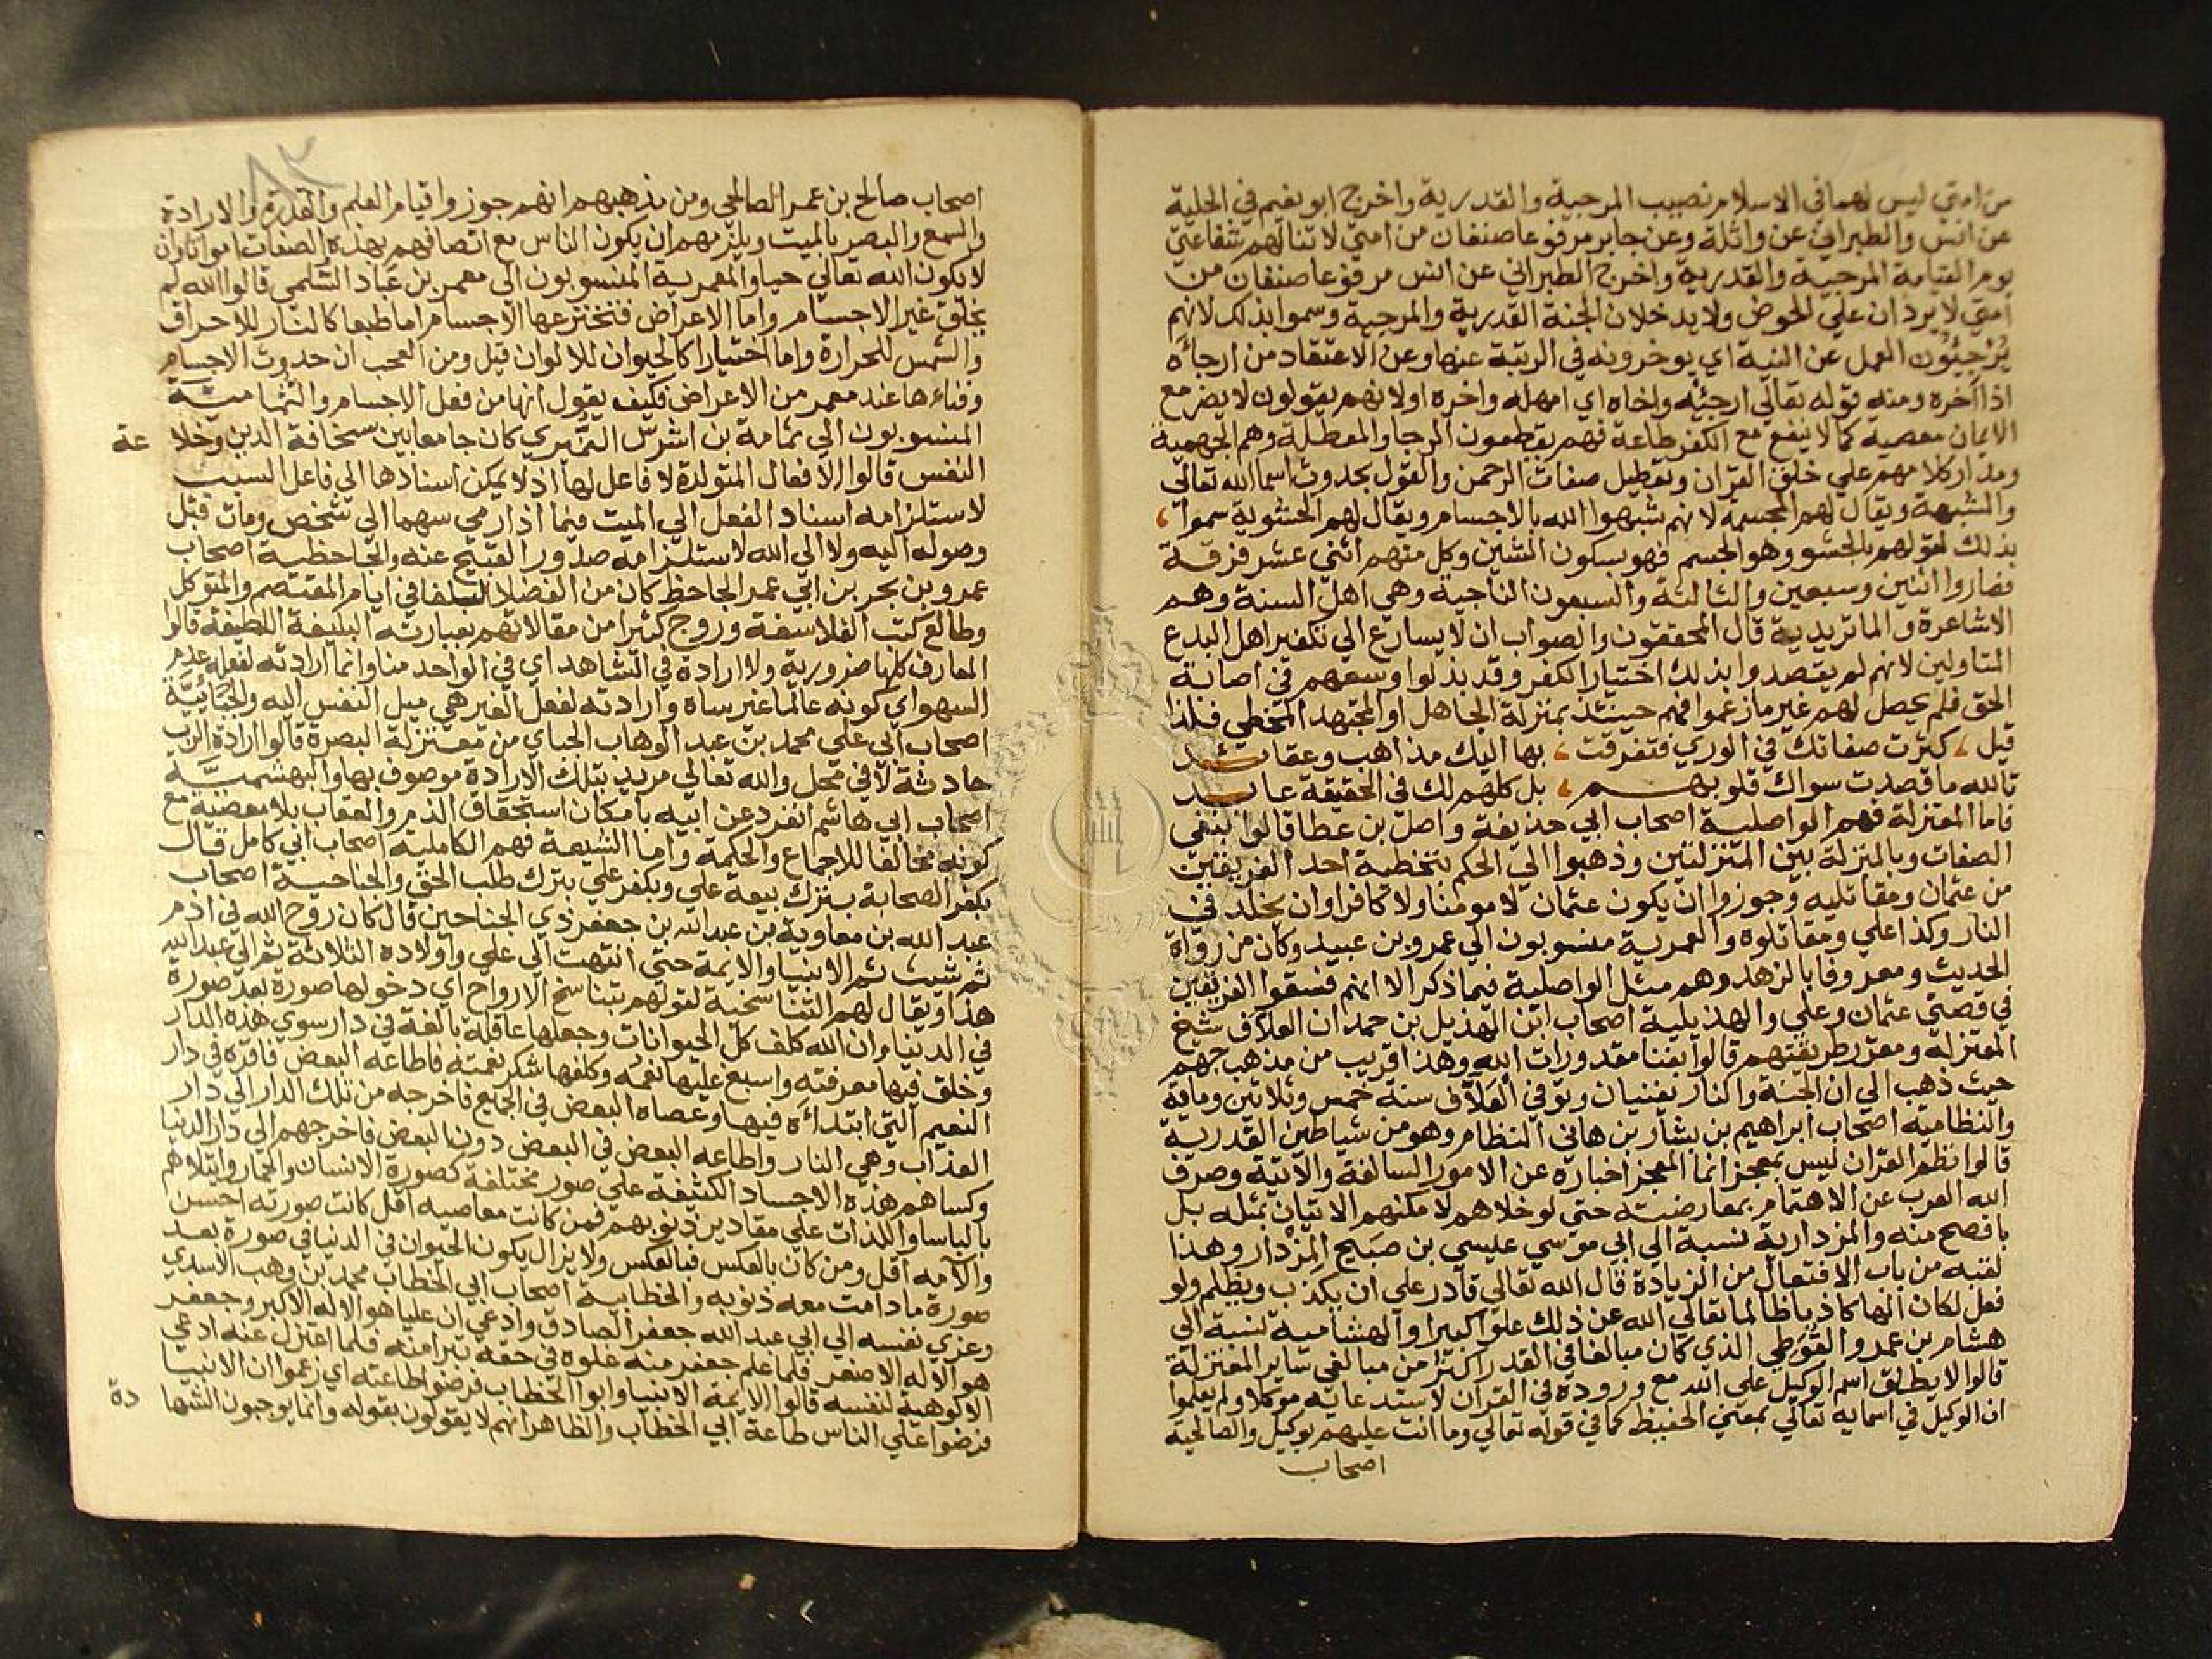 من امتي ليس لهما في الاسلام نصيب المرجية والقدرية واخرج ابو نعيم في الحلية
عن انس والطبراني عن واثلة وعن جابر مرفوعا صنفان من امتي لا تنالهم شفاعتي
يوم القيامة المرجية والقدرية واخرج الطبراني عن انس مرفوعا صنفان من
امتي لا يردان علي الحوض ولا يدخلان الجنة القدرية والمرجية وسموا بذلك لانهم
يُرْجِئُون العمل عن النية اي يوخرونه في الرتبة عنها وعن الاعتقاد من ارجاءه
اذا اخره ومنه قوله تعالي ارجئه واخاه اي امهله واخره اولانهم يقولون لا يضر مع
الايمان معصية كما لا ينفع مع الكفر طاعة فهم يقطعون الرجا والمعطلة وهم الجهمية
ومدار كلامهم علي خلق القران وتعطيل صفات الرحمن والقول بحدوث اسما الله تعالي
والمشبهة ويقال لهم المجسمة لانهم شبهوا الله بالاجسام ويقال لهم الحشوية سموا
بذلك لقولهم بالحشو وهو الجسم فهو بسكون الشين وكل منهم اثني عشر فرقة
فصاروا اثنين وسبعين والثالثة والسبعون الناجية وهي اهل السنة وهم
الاشاعرة والماتريدية قال المحققون والصواب ان لا يسارع الي تكفير اهل البدع
المتاولين لانهم لم يقصدوا بذلك اختيار الكفر وقد بذلوا وسعهم في اصابة
الحق فلم يحصل لهم غير ما زعموا فهم حينئذ بمنزلة الجاهل او المجتهد المخطي فلذا
قيل ، كثرت صفاتك في الوري فتفرقت ، بها اليك مذاهب وعقائد
تالله ما قصدت سواك قلوبهم ، بل كلهم لك في الحقيقة عابد
فاما المعتزلة فهم الواصلية اصحاب ابي حذيفة واصل بن عطا قالوا بنفي
الصفات وبالمنزلة بين المنزلتين وذهبوا الي الحكم بتخطية احد الفريقين
من عثمان ومقاتليه وجوزوا ان يكون عثمان لا مومنا ولا كافرا وان يخلد في
النار وكذا علي ومقاتلوه والعمرية منسوبون الي عمرو بن عبيد وكان من رواة
الحديث ومعروفا بالزهد وهم مثل الواصلية فيما ذكر الا انهم فسقوا الفريقين
في قصتي عثمان وعلي والهذيلية اصحاب ابن الهذيل بن حمدان العلاف شيخ
المعتزلة ومقرر طريقتهم قالوا بفنا مقدورات الله وهذا قريب من مذهب جهم
حيث ذهب الي ان الجنة والنار تفنيان وتوفي العَلاَّف سنة خمس وثلاثين وماية
والنظامية اصحاب ابراهيم بن يشار بن هاني النظام وهو من شياطين القدرية
قالوا نظم القران ليس بمعجز انما المعجز اخباره عن الامور السالفة والاتية وصرف
الله العرب عن الاهتمام بمعارضته حتي لو خلاهم لامكنهم الاتيان بمثله بل
بافصح منه والمزدارية نسبة الي ابي موسي عليسي بن صبيح المزدار وهذا
لقبه من باب الافتعال من الزيادة قال الله تعالي قادر علي ان يكذب ويظلم ولو
فعل لكان الها كاذبا ظالما تعالي الله عن ذلك علوا كبيرا والهشامية نسبة الي
هشام بن عمرو الفُوَطِي الذي كان مبالغا في القدر اكثر من مبالغي ساير المعتزلة
قالوا لا يطلق اسم الوكيل علي الله مع وروده في القران لاستدعائه موكلا ولم يعلموا
ان الوكيل في اسمايه تعالي بمعني الحفيظ كما في قوله تعالي وما انت عليهم بوكيل والصالحية
اصحاب
اصحاب صالح بن عمر الصالحي ومن مذهبهم انهم جوزوا قيام العلم والقدرة والارادة
والسمع والبصر بالميت ويلزمهم ان يكون الناس مع اتصافهم بهذه الصفات امواتا وان
لا يكون الله تعالي حيا والمعمرية المنسوبون الي معمر بن عباد السُّلمي قالوا الله لم
يخلق غير الاجسام واما الاعراض فتخترعها الاجسام اما طبعا كالنار للاحراق
والشمس للحرارة واما اختيارا كالحيوان للالوان قيل ومن العجب ان حدوث الاجسام
وفناءها عند معمر من الاعراض فكيف يقول انها من فعل الاجسام والثمامية
المنسوبون الي ثمامة بن اشرس النميري كان جامعا بين سخافة الدين وخلا عة
النفس قالوا الافعال المتولدة لا فاعل لها اذ لا يمكن اسنادها الي فاعل السبب
لاستلزامه اسناد الفعل الي الميت فيما اذا رمي سهما الي شخص ومات قبل
وصوله اليه ولا الي الله لاستلزامه صدور القبيح عنه والجاحظية اصحاب
عمرو بن بحر بن ابي عمر الجاحظ كان من الفضلا البلغا في ايام المعتصم والمتوكل
وطالع كتب الفلاسفة وروج كثيرا من مقالاتهم بعباراته البليغة اللطيفة قالوا
المعارف كلها ضرورية ولا ارادة في الشاهد اي في الواحد منا وانما ارادته لفعله عدم
السهو اي كونه عالما غير ساه وارادته لفعل الغير هي ميل النفس اليه والجُبَّائيَّة
اصحاب ابي علي محمد بن عبد الوهاب الجباي من معتزلة البصرة قالوا ارادة الرب
حادثة لا في محل والله تعالي مريد بتلك الارادة موصوف بها والبهشمية
اصحاب ابي هاشم انفرد عن ابيه بامكان استحقاق الذم والعقاب بلا معصية مع
كونه مخالفا للاجماع والحكمة واما الشيعة فهم الكاملية اصحاب ابي كامل قال
بكفر الصحابة بترك بيعة علي وبكفر علي بترك طلب الحق والجناحية اصحاب
عبد الله بن معاوية بن عبد الله بن جعفر ذي الجناحين قال كان روح الله في ادم
ثم شيث ثم الانبيا والايمة حتي انتهت الي علي واولاده الثلاثة ثم الي عبد الله
هذا ويقال لهم التناسخية لقولهم بتناسخ الارواح اي دخولها صورة بعد صورة
في الدنيا وان الله كلف كل الحيوانات وجعلها عاقلة بالغة في دار سوي هذه الدار
وخلق فيها معرفته واسبغ عليها نعمه وكلفها شكر نعمته فاطاعه البعض فاقره في دار
النعيم التي ابتداءه فيها وعصاه البعض في الجميع فاخرجه من تلك الدار الي دار
العذاب وهي النار واطاعه البعض في البعض دون البعض فاخرجهم الي دار الدنيا
وكساهم هذه الاجساد الكثيفة علي صور مختلفة كصورة الانسان والحمار وابتلاهم
بالباسا واللذات علي مقادير ذنوبهم فمن كانت معاصيه اقل كانت صورته احسن
والامه اقل ومن كان بالعكس فبالعكس ولا يزال يكون الحيوان في الدنيا في صورة بعد
صورة ما دامت معه ذنوبه والخطابية اصحاب ابي الخطاب محمد بن وهب الاسدي
وعزي نفسه الي ابي عبد الله جعفر الصادق وادعي ان عليا هو الاله الاكبر وجعفر
هو الاله الاصغر فلما علم جعفر منه غلوه في حقه تبرا منه فلما اعتزل عنه ادعي
الالوهية لنفسه قالوا الايمة الانبيا وابوا الخطاب فرضوا طاعته اي زعموا ان الانبيا
فرضوا علي الناس طاعة ابي الخطاب والظاهر انهم لا يقولون بقوله وانما يوجبون الشها دة